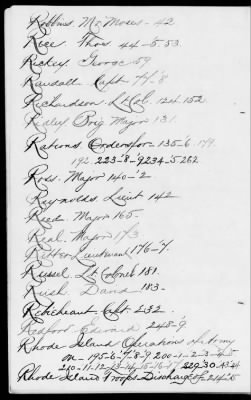 Robbins Mr Moses - 42
Rice Thos 44-5-53
Richey George 59
Randall Capt 77-8
Richardson Lt Col. 124-152
Brig Major 131
Rations Orders for 135-6 179
192 223-8-9 234-5 262
Ross Major 140-2
Reynolds Lieut 142
Reed Major 165
Major 173
Ritter Lieutenant 176-7
Russel Lt Colonel 181
Rush David 183
Capt 232
Edward 248-9
Rhode Island Operations of Army
on 195-6-7-8-9 200-1-2-3-4-5
210-11-12-13-14-15-16-17
Rhode Island Troops Discharge of